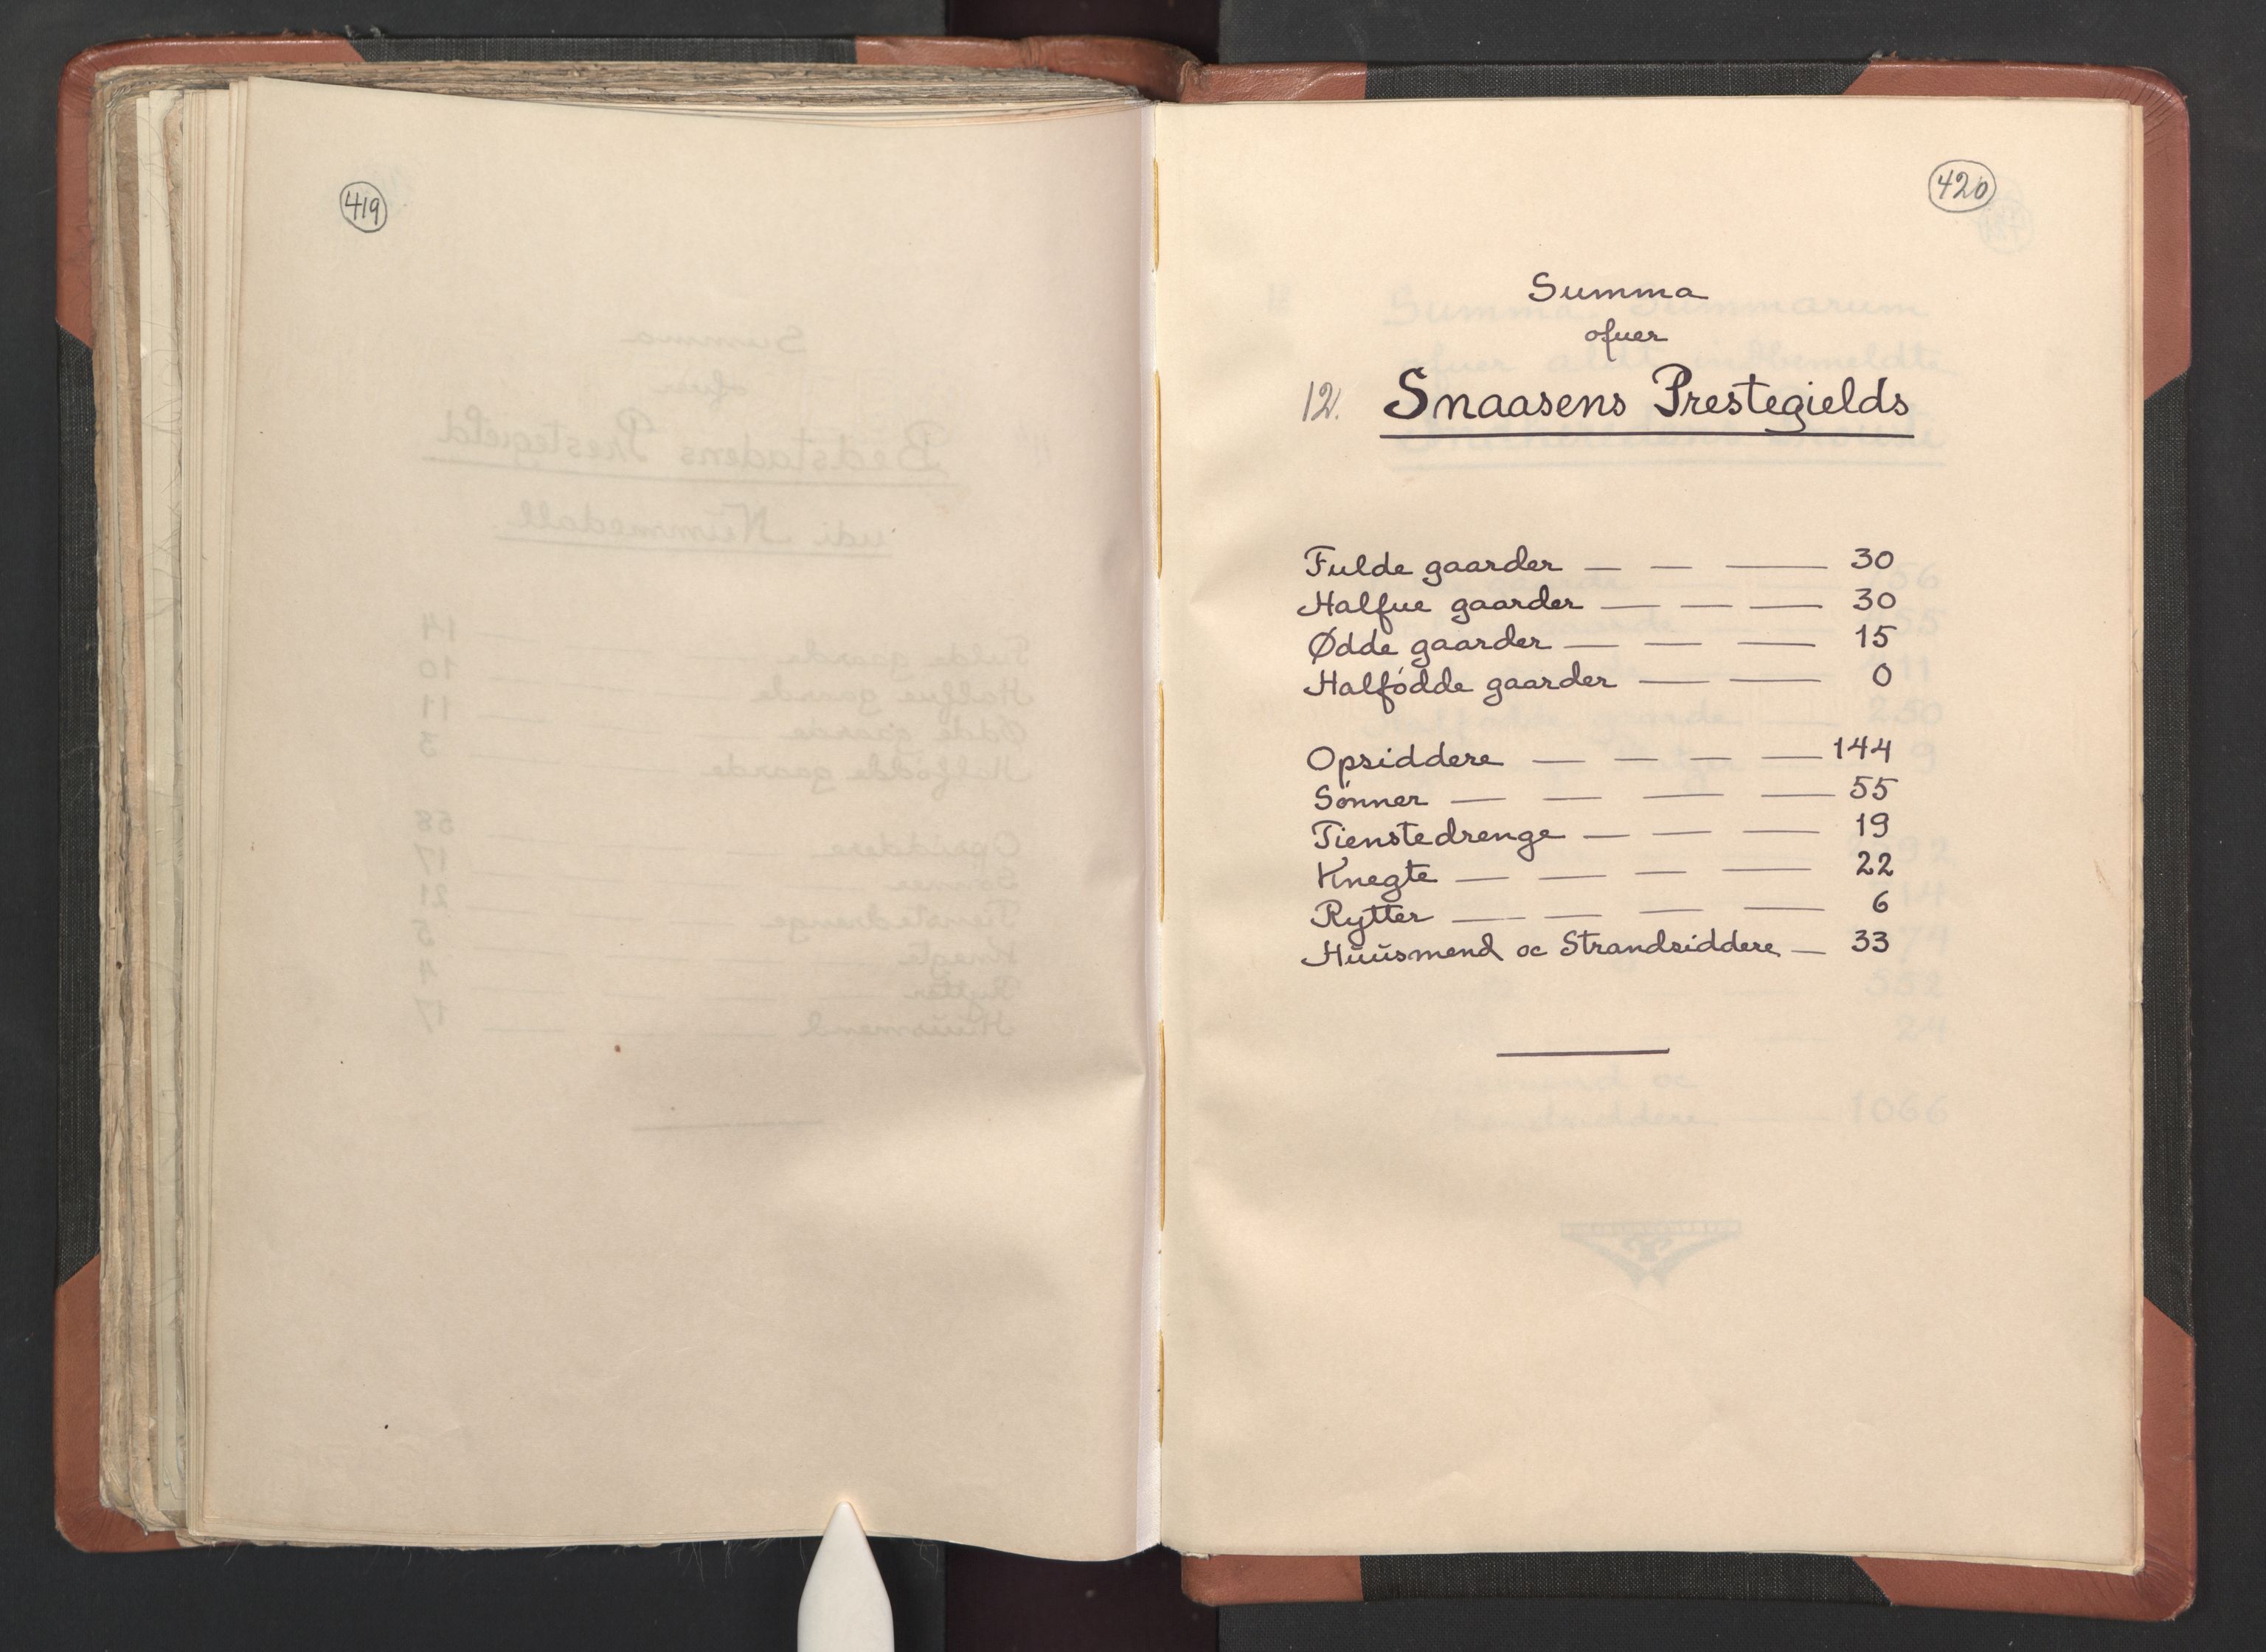 419
420
Summa
ofuer
12. Snaasens Prestegields
Fulde gaarder — — — 30
Halfue gaarder — — — 30
Ødde gaarder — — — 15
Halfödde gaarder — — 0
Opsiddere — — — — 144
Sönner — — — — 55
Tienstedrenge — — — 19
Knegte — — — — 22
Rytter — — — — 6
Huusmend oc Strandsiddere — 33